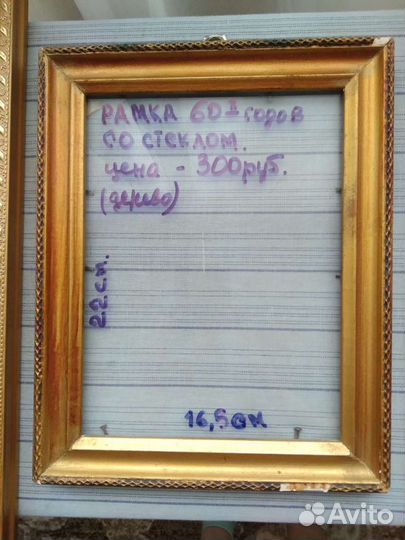 РАМКА 60х годов
СО СТЕКЛОМ.
цена - 300 руб.
(дерево)
22 см.
16,5 см
Avito